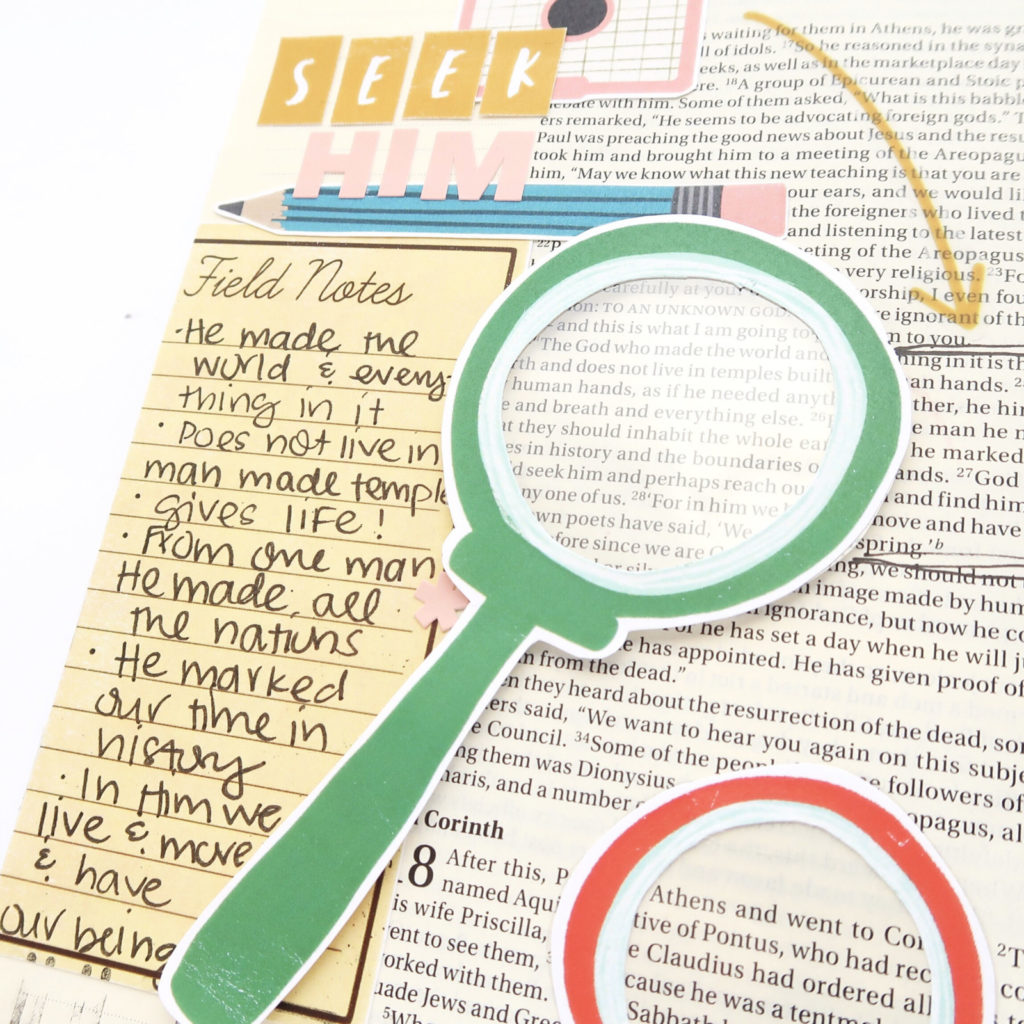 SEEK
HIM
Field Notes
·He made the
world & every-
thing in it
· Does not live in
man made temple
· gives life!
· From one man
He made all
the nations
· He marked
our time in
history
· In Him we
live & move
& have
our being
waiting for them in Athens, he was
ll of idols. 17So he reasoned in the
eeks, as well as in the marketplace day
ere. 18A group of Epicurean and Stoic
debate with him. Some of them asked, “What is this
ers remarked, “He seems to be advocating foreign gods.”
Paul was preaching the good news about Jesus and the
took him and brought him to a meeting of the
him, “May we know what this new teaching is that you are
our ears, and we would
the foreigners who lived
and listening to the latest
eting of the Areopagus
very religious. 23
orship, I even
re ignorant of
m to you.
carefully at your
ion: TO AN UNKNOWN GOD.
and this is what I am going to
“The God who made the world and
rth and does not live in temples built
human hands, as if he needed
e and breath and everything else. 26
at they should inhabit the whole
es in history and the boundaries o
ld seek him and perhaps reach
ny one of us. 28‘For in him we
own poets have said, ‘We
efore since we are
hing in it is
an hands.
ther, he
e man he
he marked
ands. 27God
and find him
move and have
spring.’b
ng, we should not
image made by
ignorance, but now he
For he has set a day when he will
he has appointed. He has given proof of
m from the dead.”
n they heard about the resurrection of the dead,
ers said, “We want to hear you again on this
e Council. 34Some of the
followers of
ng them was Dionysius
opagus,
maris, and a number
Corinth
8 After this, P
named Aqui
is wife Priscilla,
ent to see them,
orked with them.
uade Jews and
5
Athens and went to
tive of Pontus, who had
e Claudius had ordered all
cause he was a
Sabbath
2